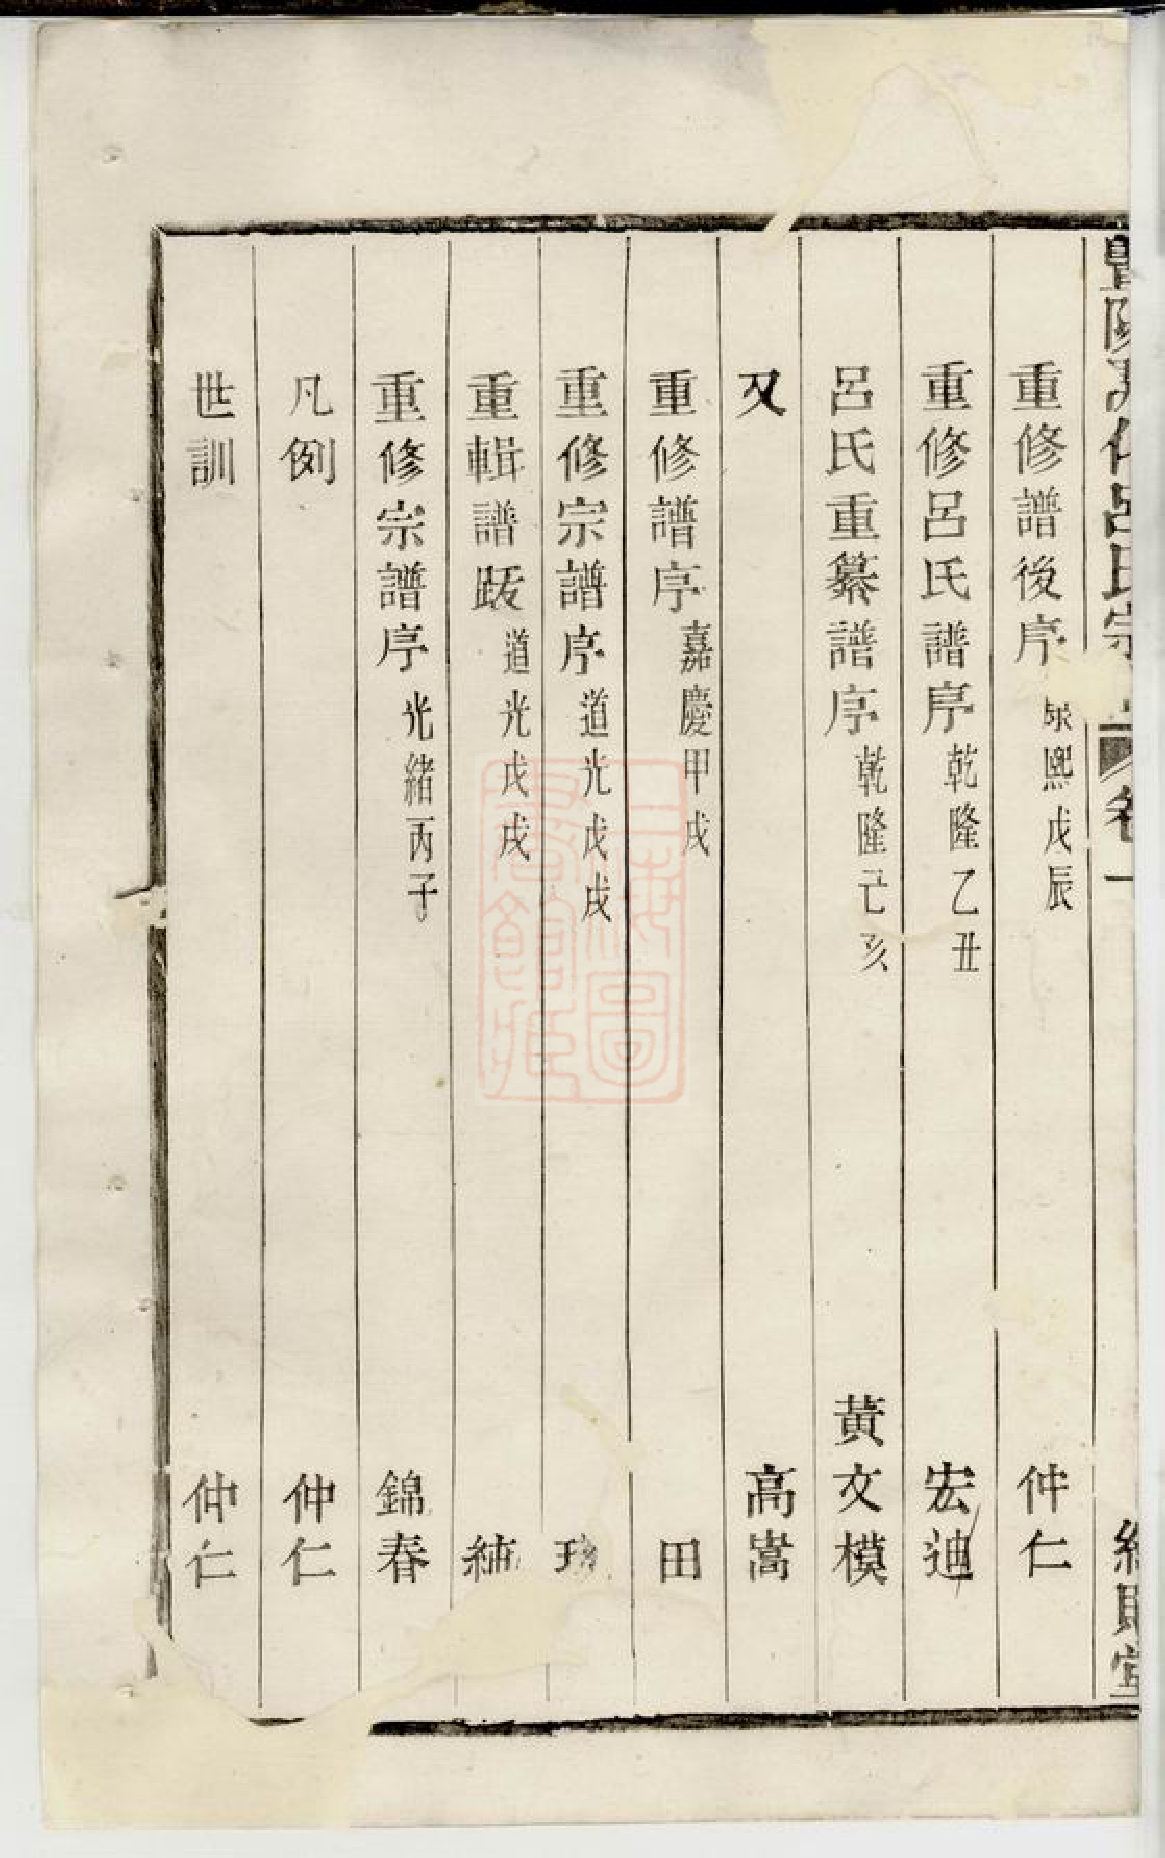 暨陽 呂氏宗 卷一
重修譜後序 熙戊辰 仲仁
重修呂氏譜序 乾隆乙丑 宏迪
呂氏重纂譜序 乾隆己亥 黃文模
又 高嵩
重修譜序 嘉慶甲戌 田
重修宗譜序 道光戊戌
重輯譜跋 道光戊戌
重修宗譜序 光緒丙子 錦春
凡例 仲仁
世訓 仲仁